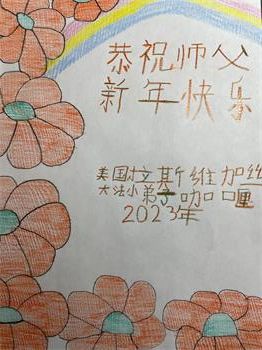 恭祝师父
新年快乐
美国拉斯维加丝
大法小弟子咖喱
2023年